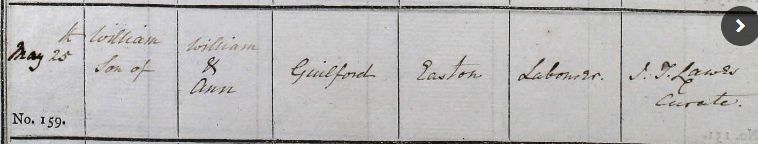 May 25th
No. 159.
William
Son of
William
&
Ann
Guilford
Easton
Labourer.
J. T. Lawes
Curate.